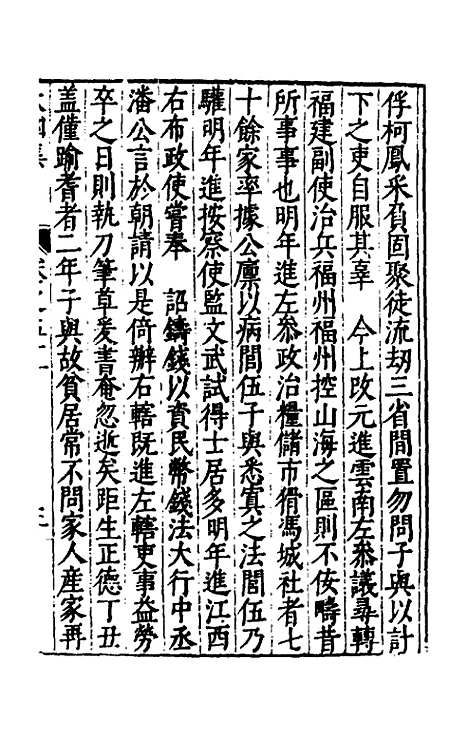 俘柯鳳釆負固聚徒流刼三省間置勿問子與以計
下之吏自服其辜　今上改元進雲南左叅議尋轉
福建副使治兵福州福州控山海之區則不侒疇昔
所事事也明年進左叅政治糧儲市猾馮城社者七
十餘家率據公廪以病閭伍子與悉寘之法閭伍乃
驩明年進按察使監文武試得士居多明年進江西
右布政使嘗奉　詔鑄錢以資民幣錢法大行中丞
潘公言於朝請以是倚辦右轄既進左轄吏事益勞
卒之日則執刀筆草爰書奄忽逝矣距生正德丁丑
盖僅踰耆者二年子與故貧居常不問家人産家再